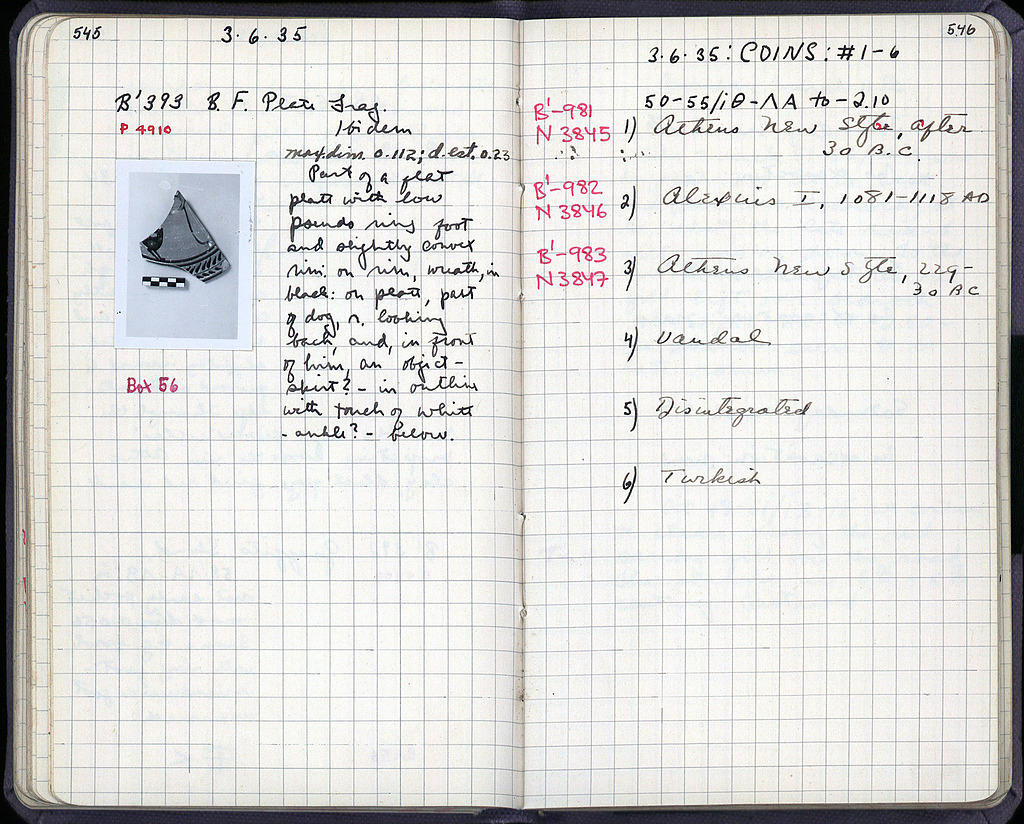 545
3·6·35
B'393 B. F. Plate Frag.
P 4910
Ibidem
max.dim. 0.112; d.est. 0.23
Part of a flat
plate with low
pseudo ring foot
and slightly convex
rim. on rim, wreath, in
black: on plate, part
of dog, r. looking
back, and, in front
of him, an object -
skirt? - in outline
with touch of white
- ankle? - below.
Box 56
546
3·6·35: COINS: #1-6
50-55/ιθ-ΛΑ to -2.10
B'-981
N 3845 1) Athens New Style, after
30 B.C.
B'-982
N 3846 2) Alexius I, 1081-1118 AD
B'-983
N 3847 3) Athens New Style, 229-
30 BC
4) Vandal
5) Disintegrated
6) Turkish